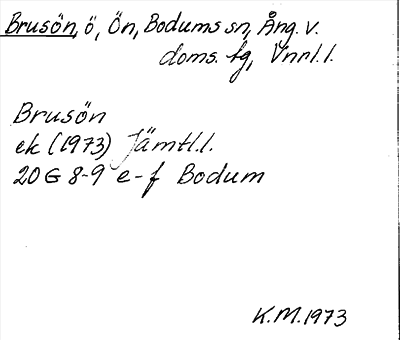 Brusön, ö, Ön, Bodums sn, Ång. v.
doms. fg, Vnrl. l.
Brusön
ek (1973) Jämtl.l.
20 G 8-9 e-f Bodum
K.M. 1973